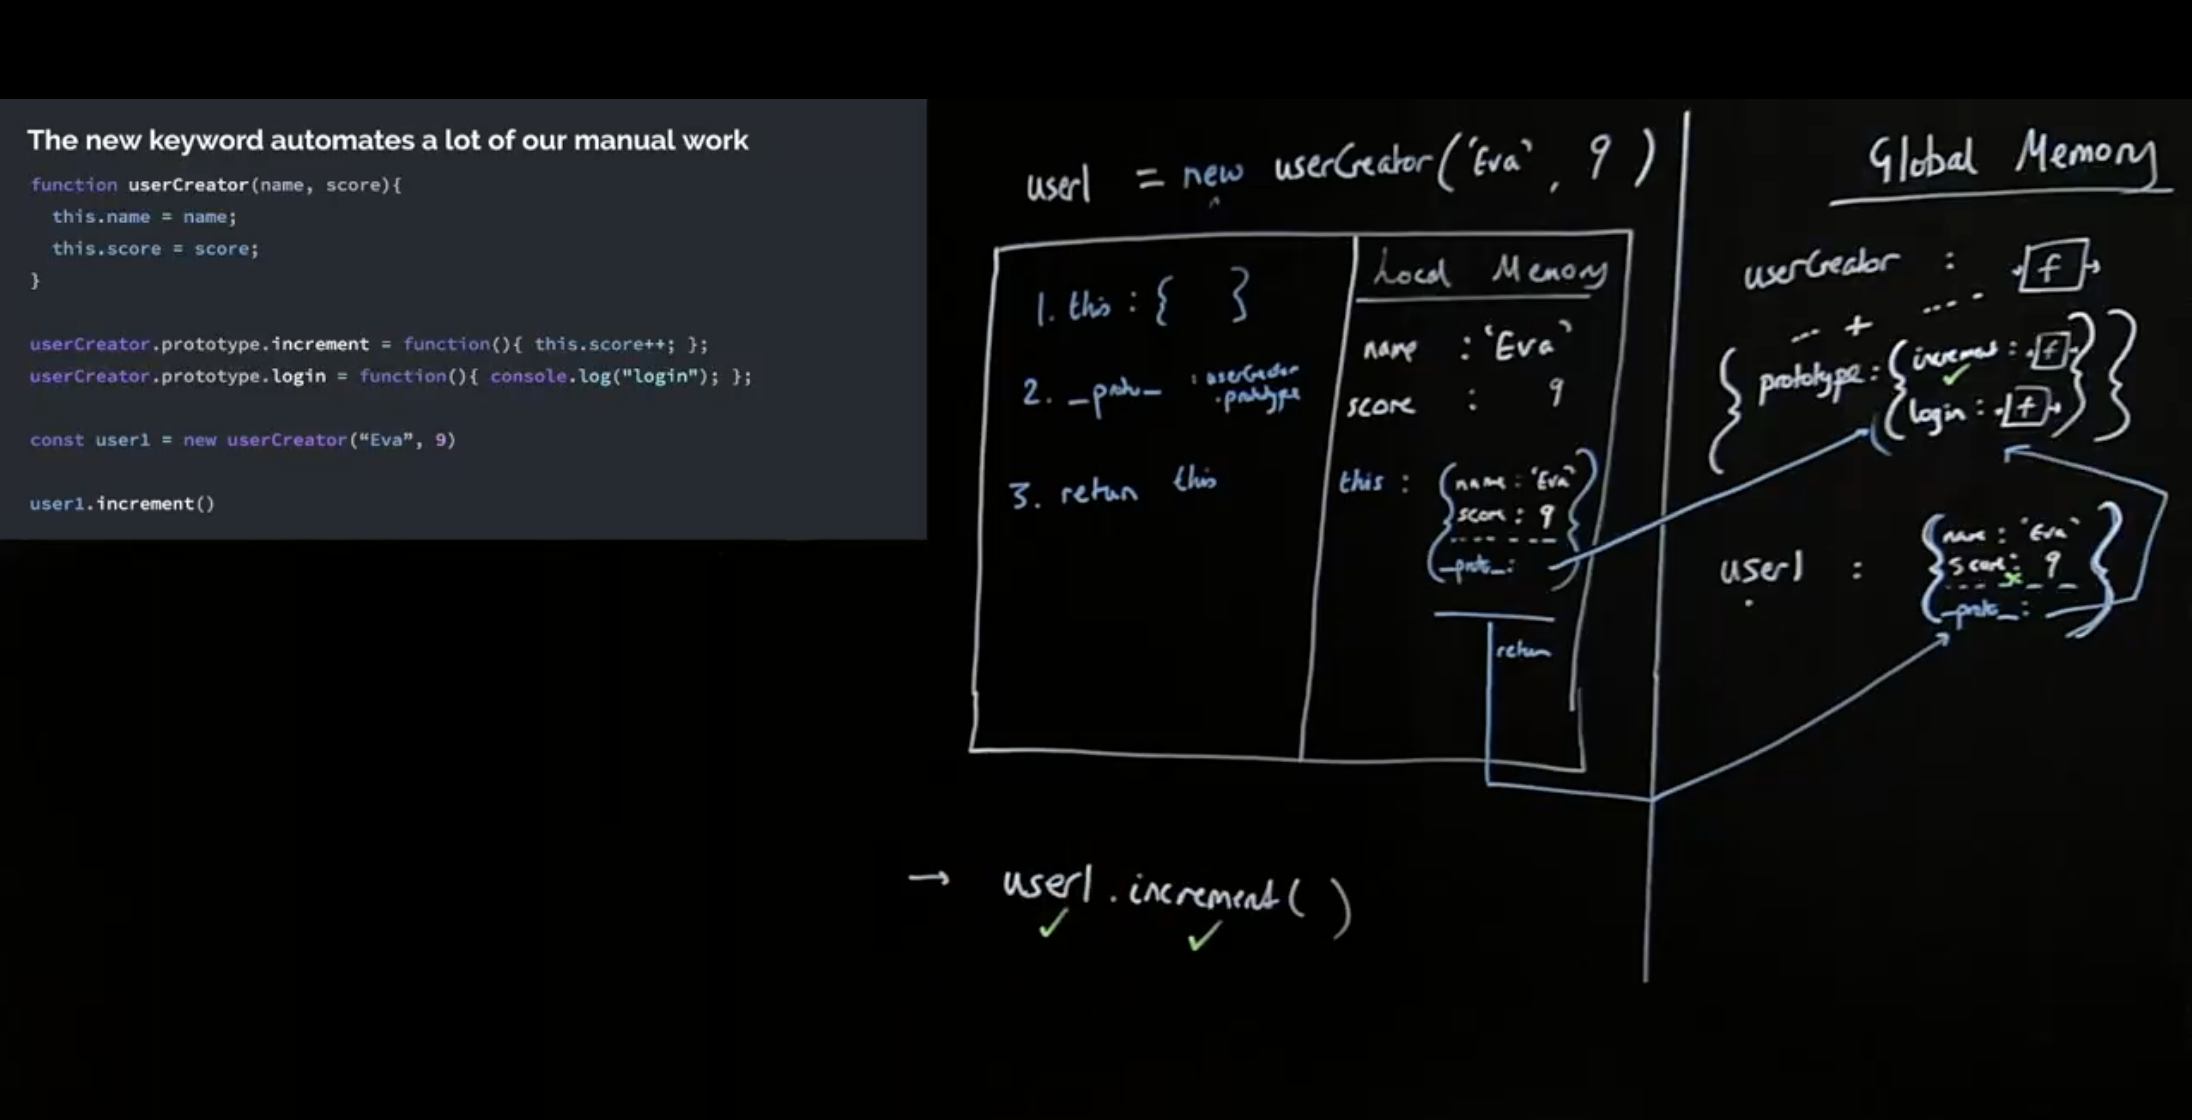 The new keyword automates a lot of our manual work
function userCreator(name, score){
this.name = name;
this.score = score;
}
userCreator.prototype.increment = function(){ this.score++; };
userCreator.prototype.login = function(){ console.log("login"); };
const user1 = new userCreator(“Eva”, 9)
user1.increment()
user1 = new userCreator('Eva', 9)
1. this : { }
2. _proto_ : userCreator
.prototype
3. return this
Local Memory
name : 'Eva'
score : 9
this : { name : 'Eva'
score : 9
_proto_ : }
return
→ user1.increment()
Global Memory
userCreator : f
+
{ prototype : { increment : f
login : f } }
user1 : { name : 'Eva'
score : 9
_proto_ : }